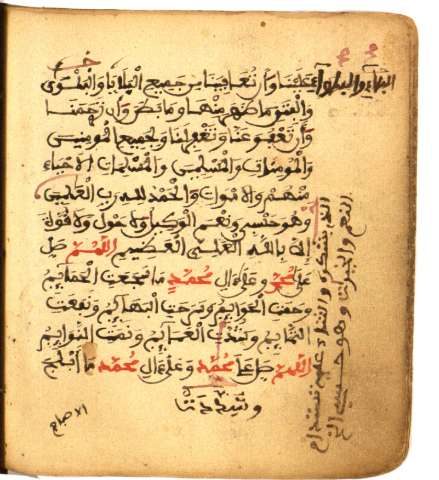 البلاء والبلواء
علينا وأن تعافينا من جميع البلايا والبلوى
والفتن ما ظهر منها وما بطن وأن ترحمنا
وأن تعفو عنا وتغفر لنا ولجميع المومنين
والمومنات والمسلمين والمسلمات الاحياء
منهم والاموات والحمد لله رب العلمين
وهو حسبي ونعم الوكيل ولا حول ولا قوة
إلا بالله العلي العظيم اللهم صل
على محمد وعلى ءال محمد ما سجعت الحمايم
وحمت الحوايم وسرحت البهايم ونفعت
التمايم وشدت العمايم ونمت النوايم
اللهم صل على محمد وعلى ءال محمد ما أبلج
الاصباح
والثناء عليه
النعم والخيرات وهو حسبي الخ